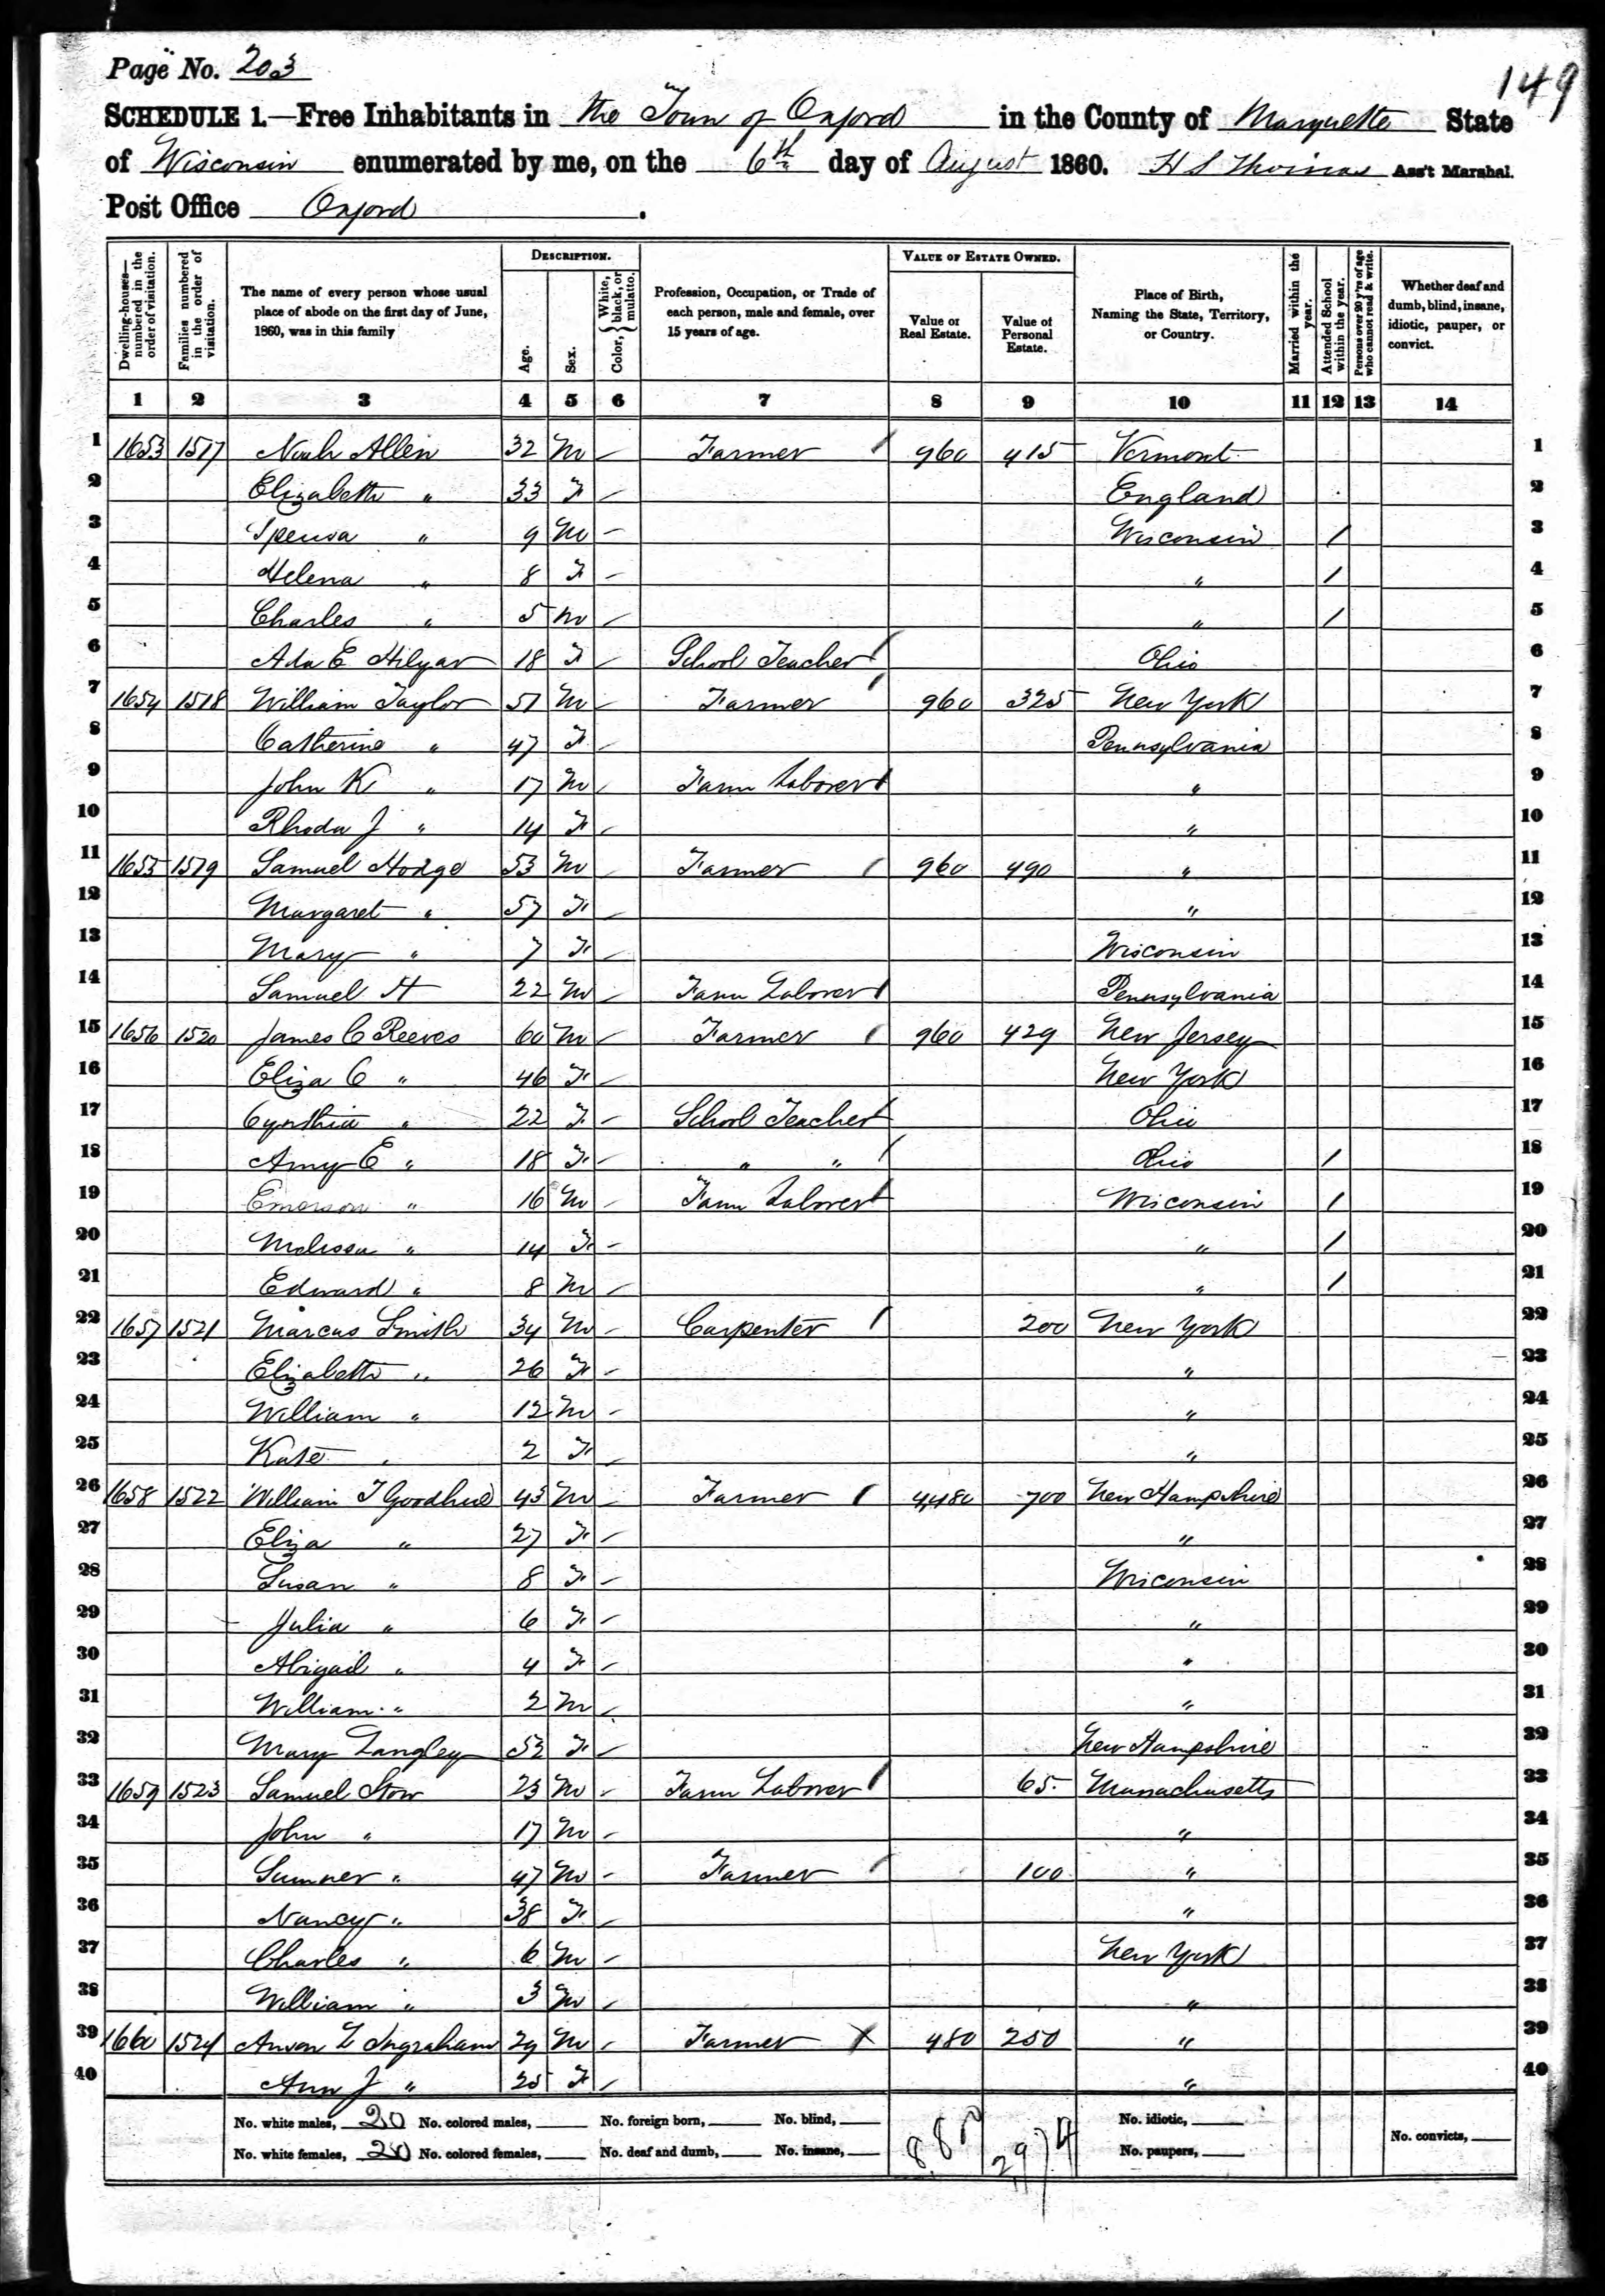 Page No. 203
149
SCHEDULE 1.—Free Inhabitants in the Town of Oxford in the County of Marquette State
of Wisconsin enumerated by me, on the 6th day of August 1860. H S Thomas Ass't Marshal.
Post Office Oxford.
Dwelling-houses—numbered in the order of visitation. Families numbered in the order of visitation. The name of every person whose usual place of abode on the first day of June, 1860, was in this family DESCRIPTION. Age. Sex. Color, { White, black, or mulatto. Profession, Occupation, or Trade of each person, male and female, over 15 years of age. VALUE OF ESTATE OWNED. Value of Real Estate. Value of Personal Estate. Place of Birth, Naming the State, Territory, or Country. Married within the year. Attended School within the year. Persons over 20 y'rs of age who cannot read & write. Whether deaf and dumb, blind, insane, idiotic, pauper, or convict.
1 2 3 4 5 6 7 8 9 10 11 12 13 14
1 1653 1517 Noah Allen 32 M Farmer / 960 415 Vermont 1
2 Elizabeth " 33 F England 2
3 9 M Wisconsin / 3
4 Helena " 8 F " / 4
5 Charles " 5 M " / 5
6 Ada E Hilyar 18 F School Teacher / Ohio 6
7 1654 1518 William Taylor 51 M Farmer / 960 325 New York 7
8 Catherine " 47 F Pennsylvania 8
9 John K " 17 M Farm Laborer / " 9
10 Rhoda J " 14 F " 10
11 1655 1519 Samuel Hodge 53 M Farmer / 960 490 " 11
12 Margaret " 57 F " 12
13 Mary " 7 F Wisconsin 13
14 Samuel H 22 M Farm Laborer / Pennsylvania 14
15 1656 1520 James C Reeves 60 M Farmer / 960 429 New Jersey 15
16 Eliza C " 46 F New York 16
17 Cynthia " 22 F School Teacher / Ohio 17
18 Amy E " 18 F " " / Ohio / 18
19 Emerson " 16 M Farm Laborer / Wisconsin / 19
20 Melissa " 14 F " / 20
21 Edward " 8 M " / 21
22 1657 1521 Marcus Smith 34 M Carpenter / 200 New York 22
23 Elizabeth " 26 F " 23
24 William " 12 M " 24
25 Kate " 2 F " 25
26 1658 1522 William T Goodhue 43 M Farmer / 4,480 700 New Hampshire 26
27 Eliza " 27 F " 27
28 Susan " 8 F Wisconsin 28
29 Julia " 6 F " 29
30 Abigail " 4 F " 30
31 William " 2 M " 31
32 Mary Langley 53 F New Hampshire 32
33 1659 1523 Samuel Stow 23 M Farm Laborer / 65 Massachusetts 33
34 John " 17 M " 34
35 Sumner " 47 M Farmer / 100 " 35
36 Nancy " 38 F " 36
37 Charles " 6 M New York 37
38 William " 3 M " 38
39 1660 1524 Anson L Ingraham 29 M Farmer X 480 250 " 39
40 Ann J " 25 F " 40
No. white males, 20 No. colored males, No. foreign born, No. blind, No. idiotic,
No. white females, 20 No. colored females, No. deaf and dumb, No. insane, 2974 No. paupers, No. convicts,